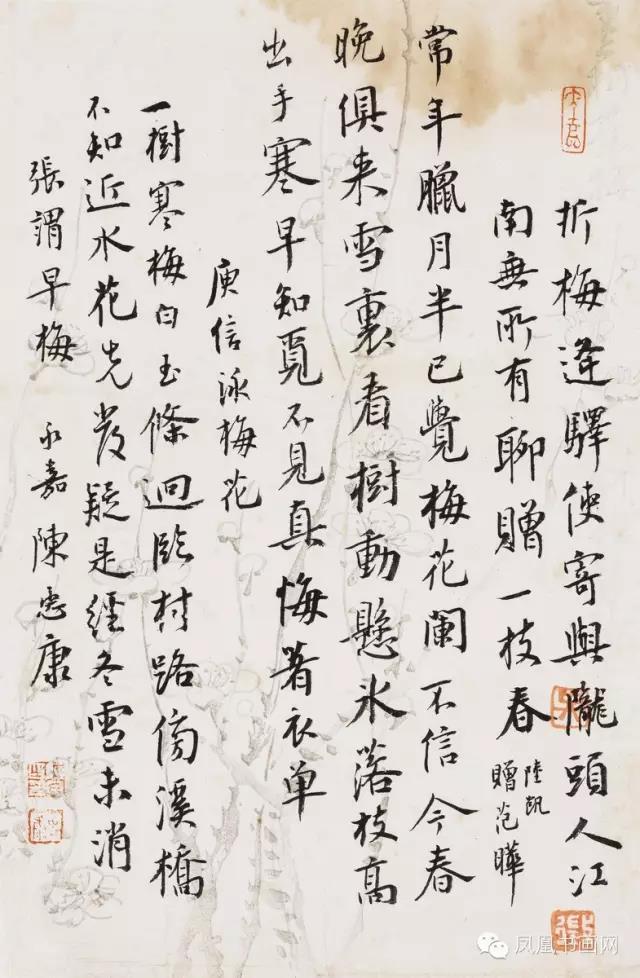 折梅逢驛使寄與隴頭人江
南無所有聊贈一枝春
陸凱
贈范曄
常年臘月半已覺梅花闌不信今春
晚俱来雪裏看樹動懸氷落枝高
出手寒早知覓不見真悔著衣单
庾信詠梅花
一樹寒梅白玉條迥臨村路傍溪橋
不知近水花先發疑是經冬雪未消
張謂早梅
永嘉陳忠康
凤凰书画网